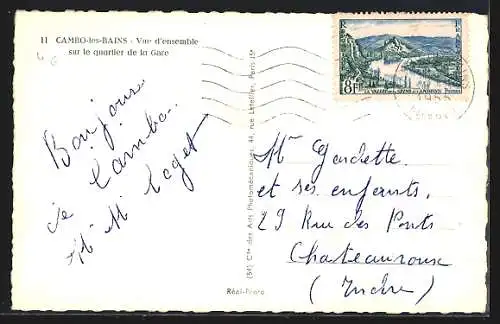 11 CAMBO-les-BAINS - Vue d'ensemble
sur le quartier de la Gare
8F
LA VALLÉE DE LA SEINE AUX ANDELYS
Bonjour
de Cambo.
(54) Cie des Arts Photomécaniques, 44, rue Letellier, Paris 15e
Réal-Photo
et ses enfants,
29 Rue des Ponts
Chateauroux
(Indre)